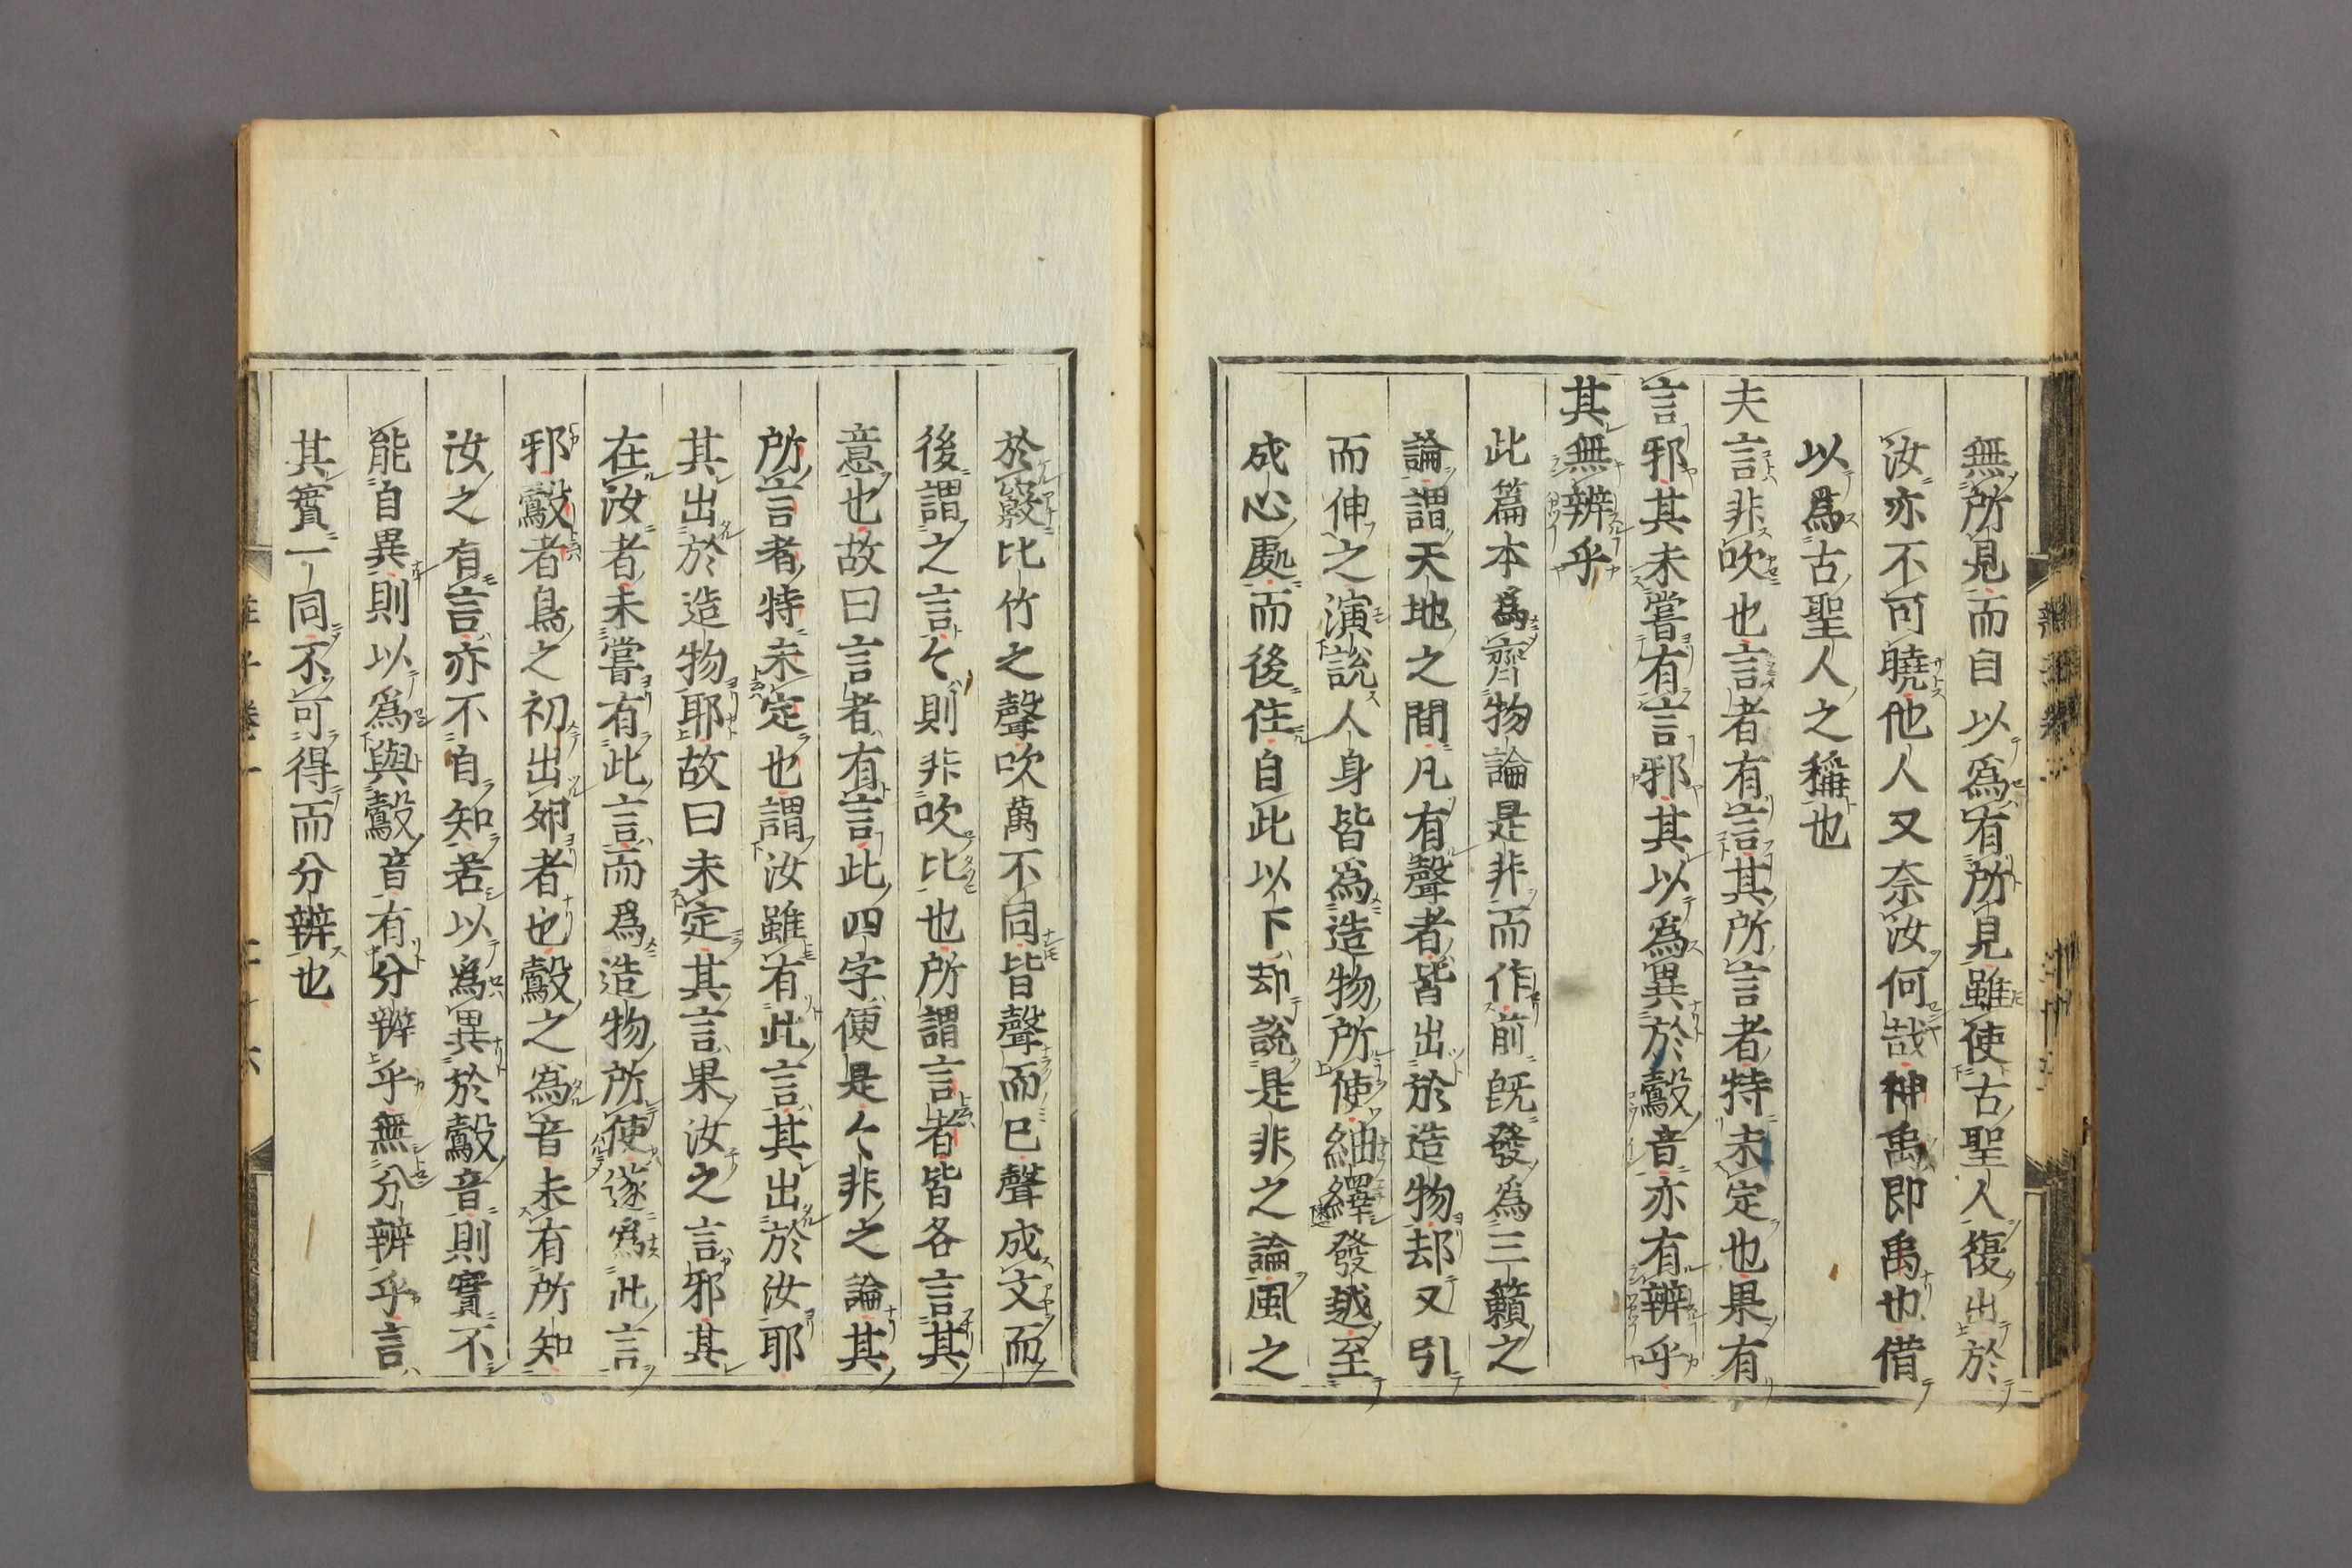 無所見而自以爲有所見雖使古聖人復出於
汝亦不可曉他人又奈汝何哉神禹即禹也借
以爲古聖人之稱也
夫言非吹也言者有言其所言者特未定也果有
言邪其未嘗有言邪其以爲異於鷇音亦有辨乎
其無辨乎
此篇本爲齊物論是非而作前旣發爲三籟之
論謂天地之間凡有聲者皆出於造物却又引
而伸之演說人身皆爲造物所使紬繹發越至
成心處而後住自此以下却說是非之論風之
於竅比竹之聲吹萬不同皆聲而已聲成文而
後謂之言々則非吹比也所謂言者皆各言其
意也故曰言者有言此四字便是人非之論其
所言者特未定也謂汝雖有此言其出於汝耶
其出於造物耶故曰未定其言果汝之言邪其
在汝者未嘗有此言而爲造物所使遂爲此言
邪鷇者鳥之初出卵者也鷇之爲音未有所知
汝之有言亦不自知若以爲異於鷇音則實不
能自異則以爲與鷇音有分辨乎無分辨乎言
其實一同不可得而分辨也
莊子卷一 二十六